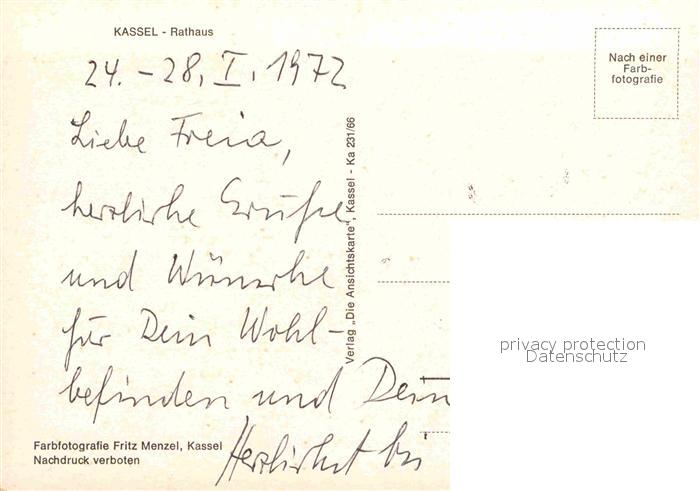 KASSEL - Rathaus
24. - 28. I. 1972
Liebe Freia,
herzliche Grüße
und Wünsche
für Dein Wohl-
befinden und Dein
Herzlichst
Verlag „Die Ansichtskarte", Kassel - Ka 231/66
Nach einer
Farb-
fotografie
privacy protection
Datenschutz
Farbfotografie Fritz Menzel, Kassel
Nachdruck verboten